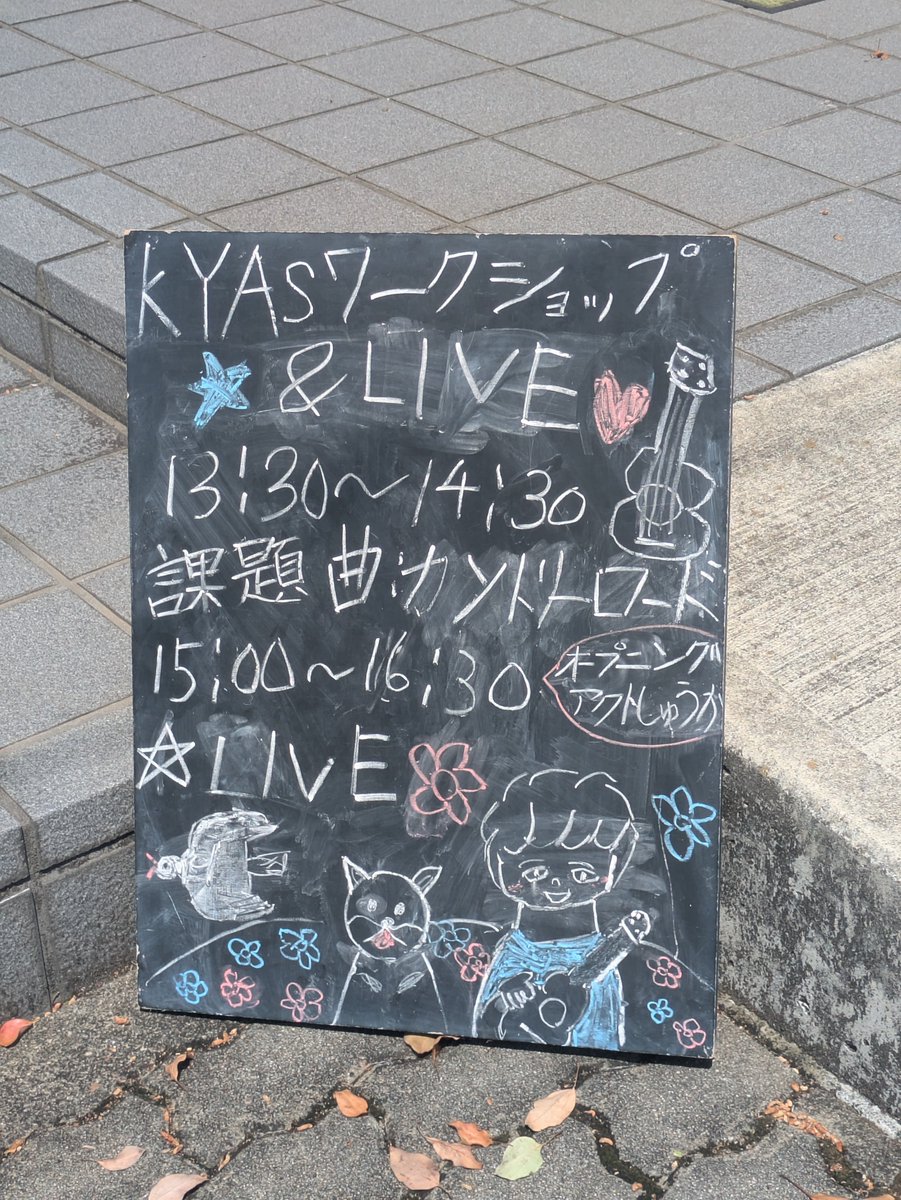 KYASワークショップ
&LIVE
13:30〜14:30
課題曲:カントリーロード
15:00〜16:30
オープニング
アクトしゅうか
☆LIVE